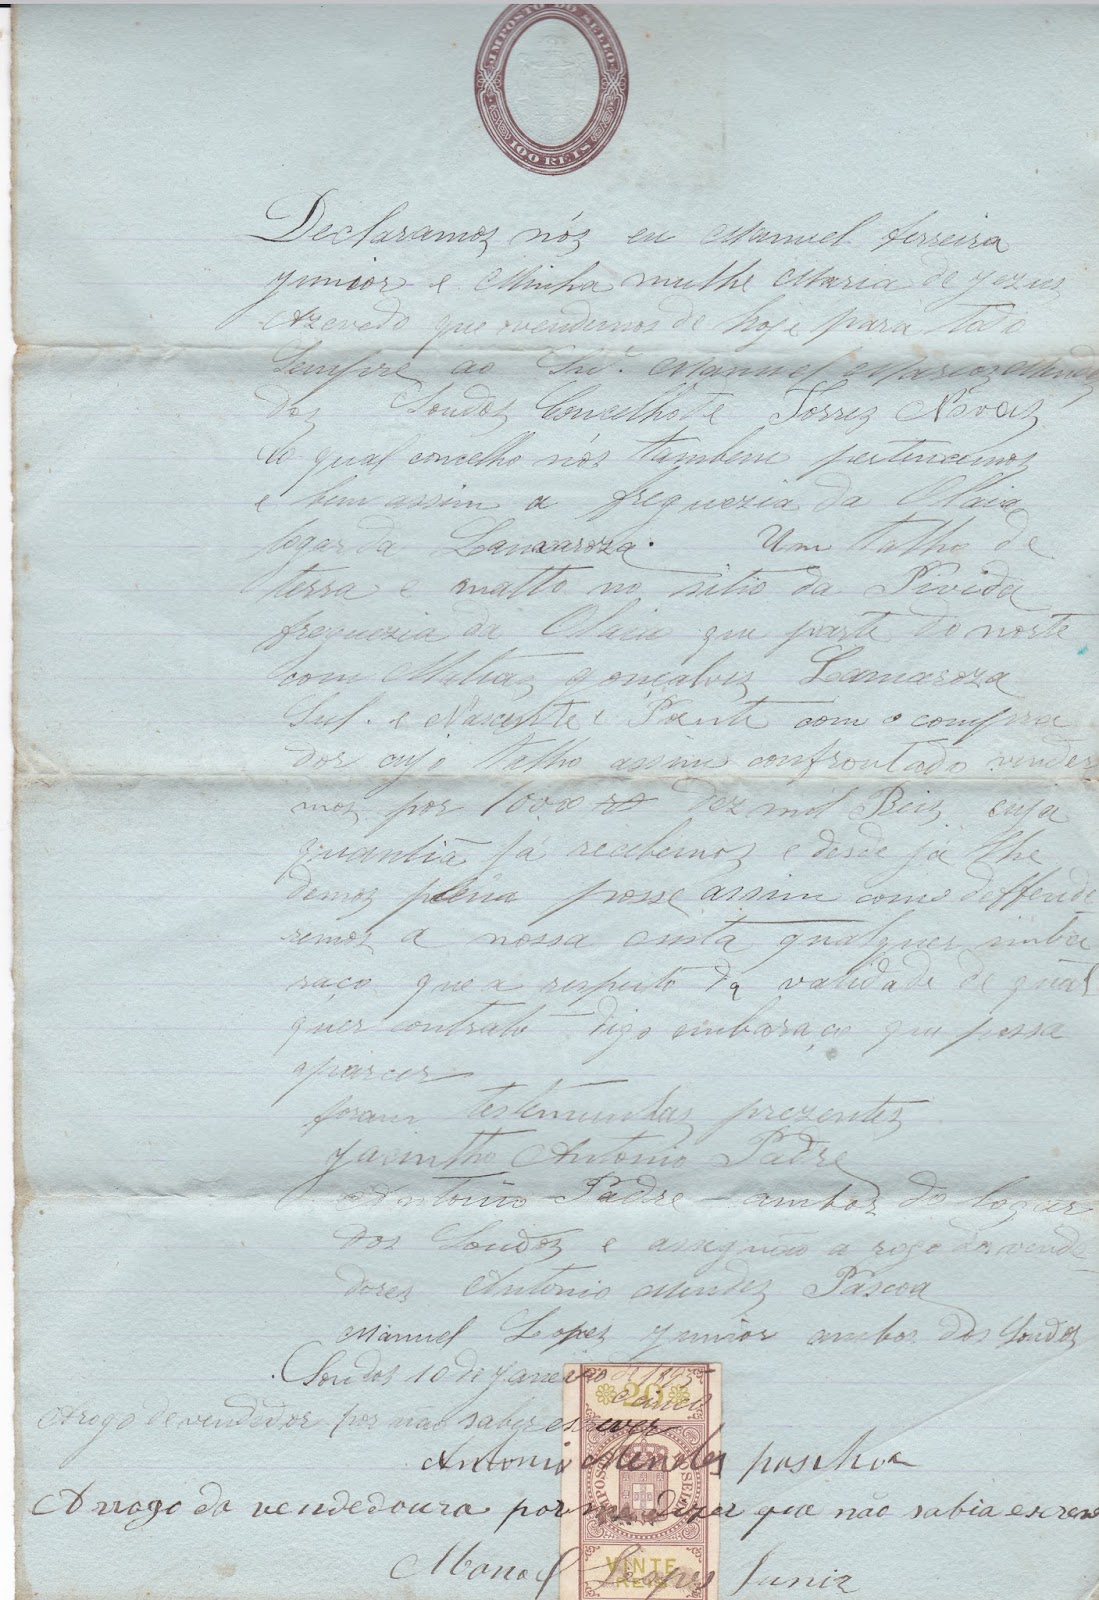 IMPOSTO DO SELLO
100 REIS
Declaramos nós eu Manuel ferreira
junior e Minha mulhe Maria de jezus
Azevedo que vendemos de hoje para todo
Sempre ao Snr. Manuel Marcos Mendes
dos Soudos Concelho de Torres Novas
do qual concelho nós tambem pertencemos
e bem assim a freguezia da Olaia
logar da Lamaroza. Um talho de
terra e matto no sitio da
freguezia da Olaia que parte do norte
com Matias gonçalves Lamaroza
Sul. e Nascente e Poente com o compra
dor cujo talho assim confrontado vende
mos por 10000 rs dez mil Reis cuja
quantia já recebemos e desde já lhe
damos plena posse assim como deffende
remos a nossa custa qualquer imba
raço que a respeito da validade de qual
quer contrato digo embaraço que possa
aparcer
foram testemunhas prezentes
jacintho Antonio Padre
Antonio Padre - ambos do logar
dos Soudos e assignão a rogo dos vende
dores Antonio Mendes Pascoa
Manuel Lopes junior ambos dos Soudos
Soudos 10 de janeiro de
Arogo de vendedor por nao saber escrever
Antonio Mendes paschoa
Arrogo da vendedoura por me dizer que não sabia escreve
Manoel Lopes Junir
20
IMPOSTO SELLO
VINTE
REIS